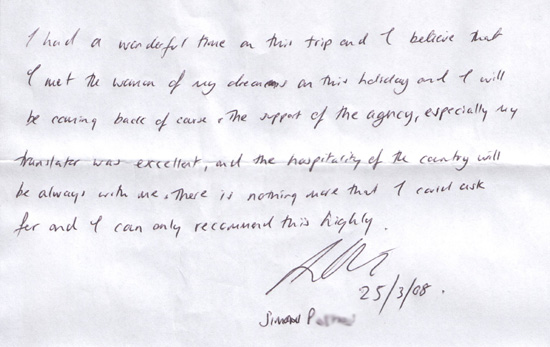 I had a wonderful time on this trip and I believe that
I met the woman of my dreams on this holiday and I will
be coming back of cause. The support of the agency, especially my
translater was excellent, and the hospitality of the country will
be always with me. There is nothing more that I could ask
for and I can only recommend this highly.
25/3/08.
Simon P